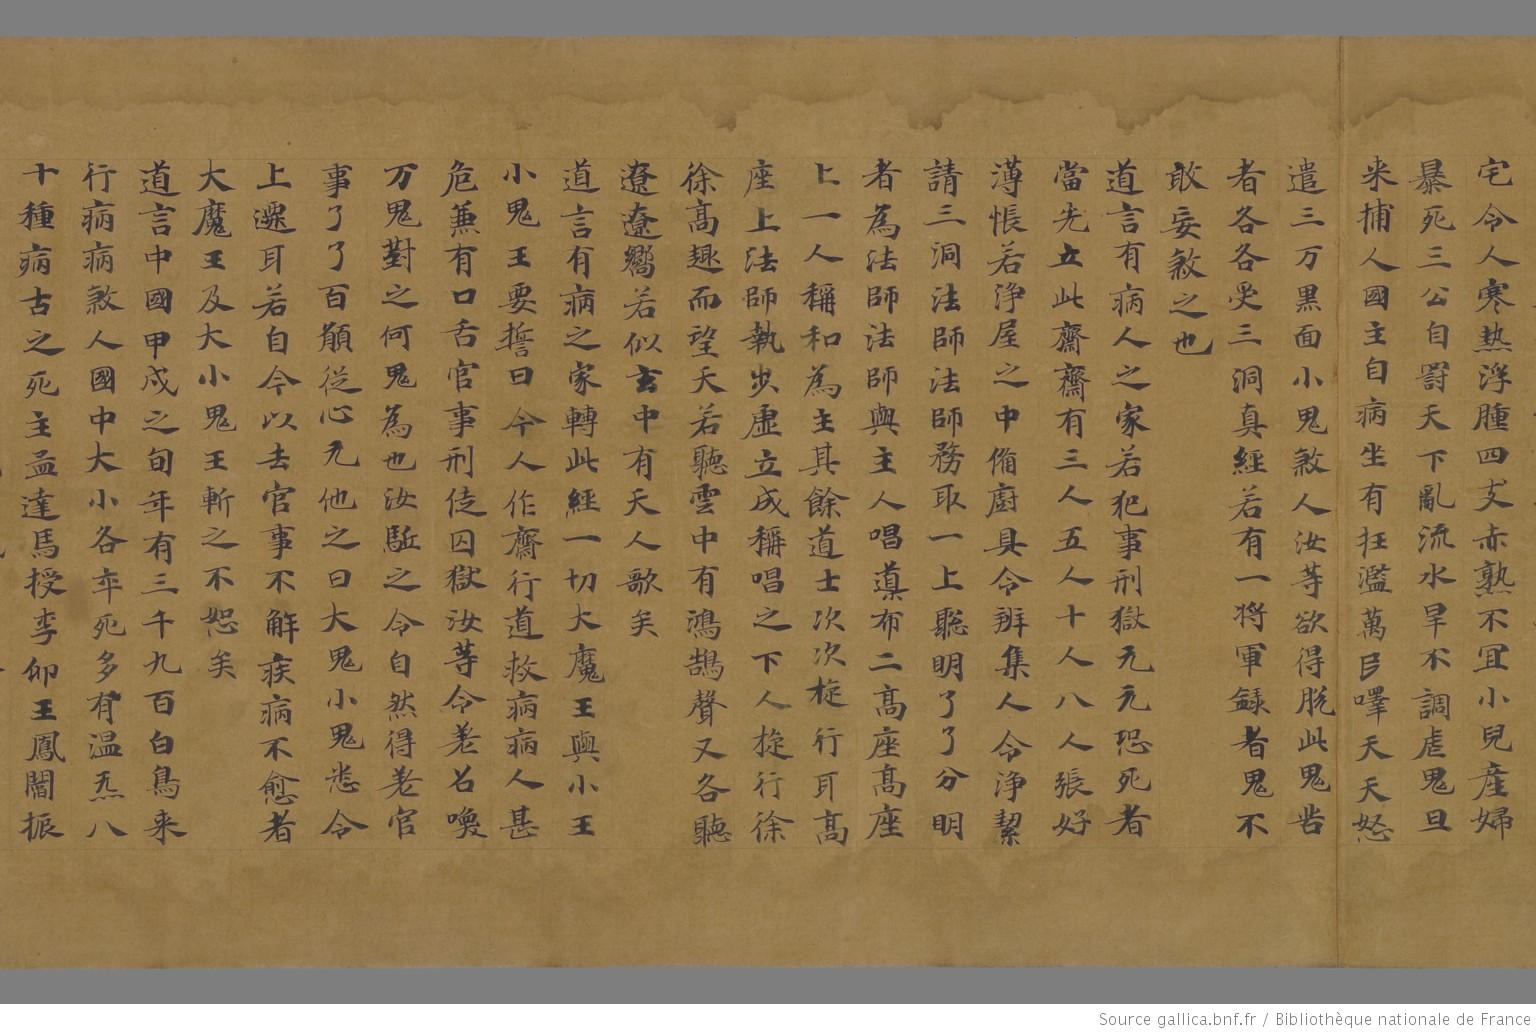 宅令人寒热浮腫四支赤熟不冝小兒産婦
暴死三公自罸天下亂流水旱不調虐鬼旦
来捕人國主自病坐有抂濫萬民嘩天天怒
遣三万黒面小鬼煞人汝等欲得脱此鬼出
者各各受三洞真經若有一將軍録者鬼不
敢妄煞之也
道言有病人之家若犯事刑獄元元恐死者
當先立此齋齋有三人五人十人八人張好
薄悵若浄屋之中俻廚具令辨集人令浄潔
請三洞法師法師務取一上聡明了了分明
者為法師法師與主人唱導布二髙座髙座
上一人稱和為主其餘道士次次㫌行耳髙
座上法師執步虛立成稱唱之下人㫌行徐
徐髙趣而望天若聽雲中有鴻鵠聲又各聽
遼遼嚮若似玄中有天人歌矣
道言有病之家轉此經一切大魔王與小王
小鬼王要誓曰今人作齋行道救病病人甚
危兼有口舌官事刑徒囚獄汝等令差名喚
万鬼對之何鬼為也汝駈之令自然得差官
事了了百願從心无他之曰大鬼小鬼悉令
上遷耳若自今以去官事不解疾病不愈者
大魔王及大小鬼王斬之不恕矣
道言中國甲戌之旬年有三千九百白鳥来
行病病煞人國中大小各卒死多有温炁八
十種病古之死主孟達馬授李仰王鳳闇振
Source gallica.bnf.fr / Bibliothèque nationale de France